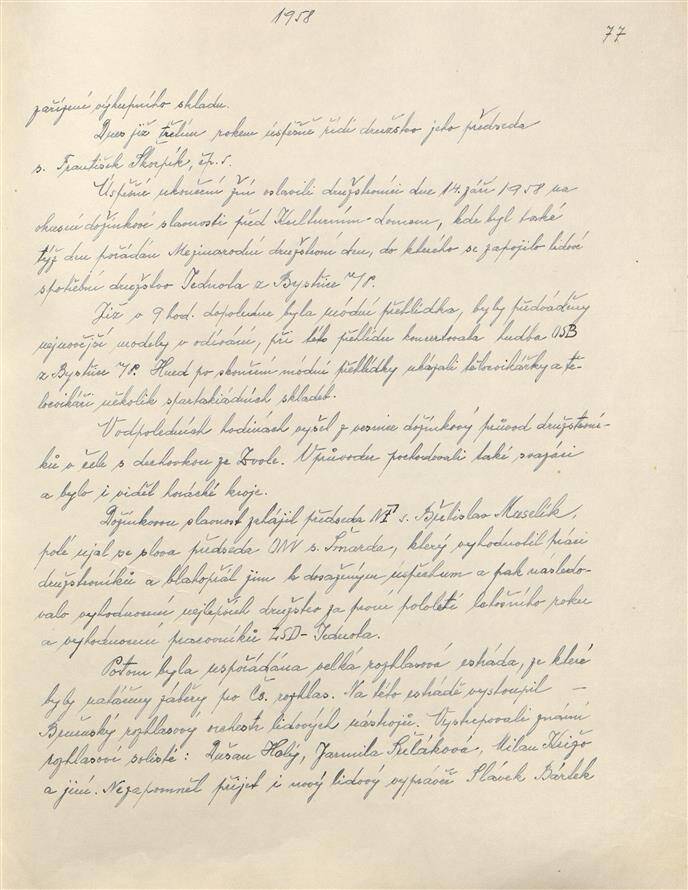 1958
77
zařízení výkupního skladu.
Dnes již třetím rokem úspěšně řídí družstvo jeho předseda
s. František Škorpík, čp. 5.
Úspěšné ukončení žní oslavili družstevníci dne 14. září 1958 na
okresní dožínkové slavnosti před Kulturním domem, kde byl také
týž den pořádán Mezinárodní družstevní den, do kterého se zapojilo lidové
spotřební družstvo Jednota z Bystřice n/P.
Již v 9 hod. dopoledne byla módní přehlídka, byly předváděny
nejnovější modely v odívání, při této přehlídce koncertovala hudba OSB
z Bystřice n/P. Hned po skončení módní přehlídky ukázali tělocvikářky a tě-
locvikáři několik spartakiádních skladeb.
V odpoledních hodinách vyšel z vesnice dožínkový průvod družstevní-
ků v čele s dechovkou ze Zvole. V průvodu pochodovali také svazáci
a bylo i vidět horácké kroje.
Dožínkovou slavnost zahájil předseda s. Břetislav Muselík,
poté ujal se slova předseda ONV s. Šmarda, který vyhodnotil práci
družstevníků a blahopřál jim k dosaženým úspěchům a pak následo-
valo vyhodnocení nejlepších družstev za první pololetí letošního roku
a vyhodnocení pracovníků LSD-Jednota.
Potom byla uspořádána velká rozhlasová estráda, ze které
byly natáčeny záběry po Čs. rozhlas. Na této estrádě vystoupil –
Brněnský rozhlasový orchestr lidových nástrojů. Vystupovali známí
rozhlasoví solisté: Dušan Holý, Jarmila Šuláková, Milan Križo
a jiní. Nezapomněl přijet i nový lidový vypravěč Slávek Bártek